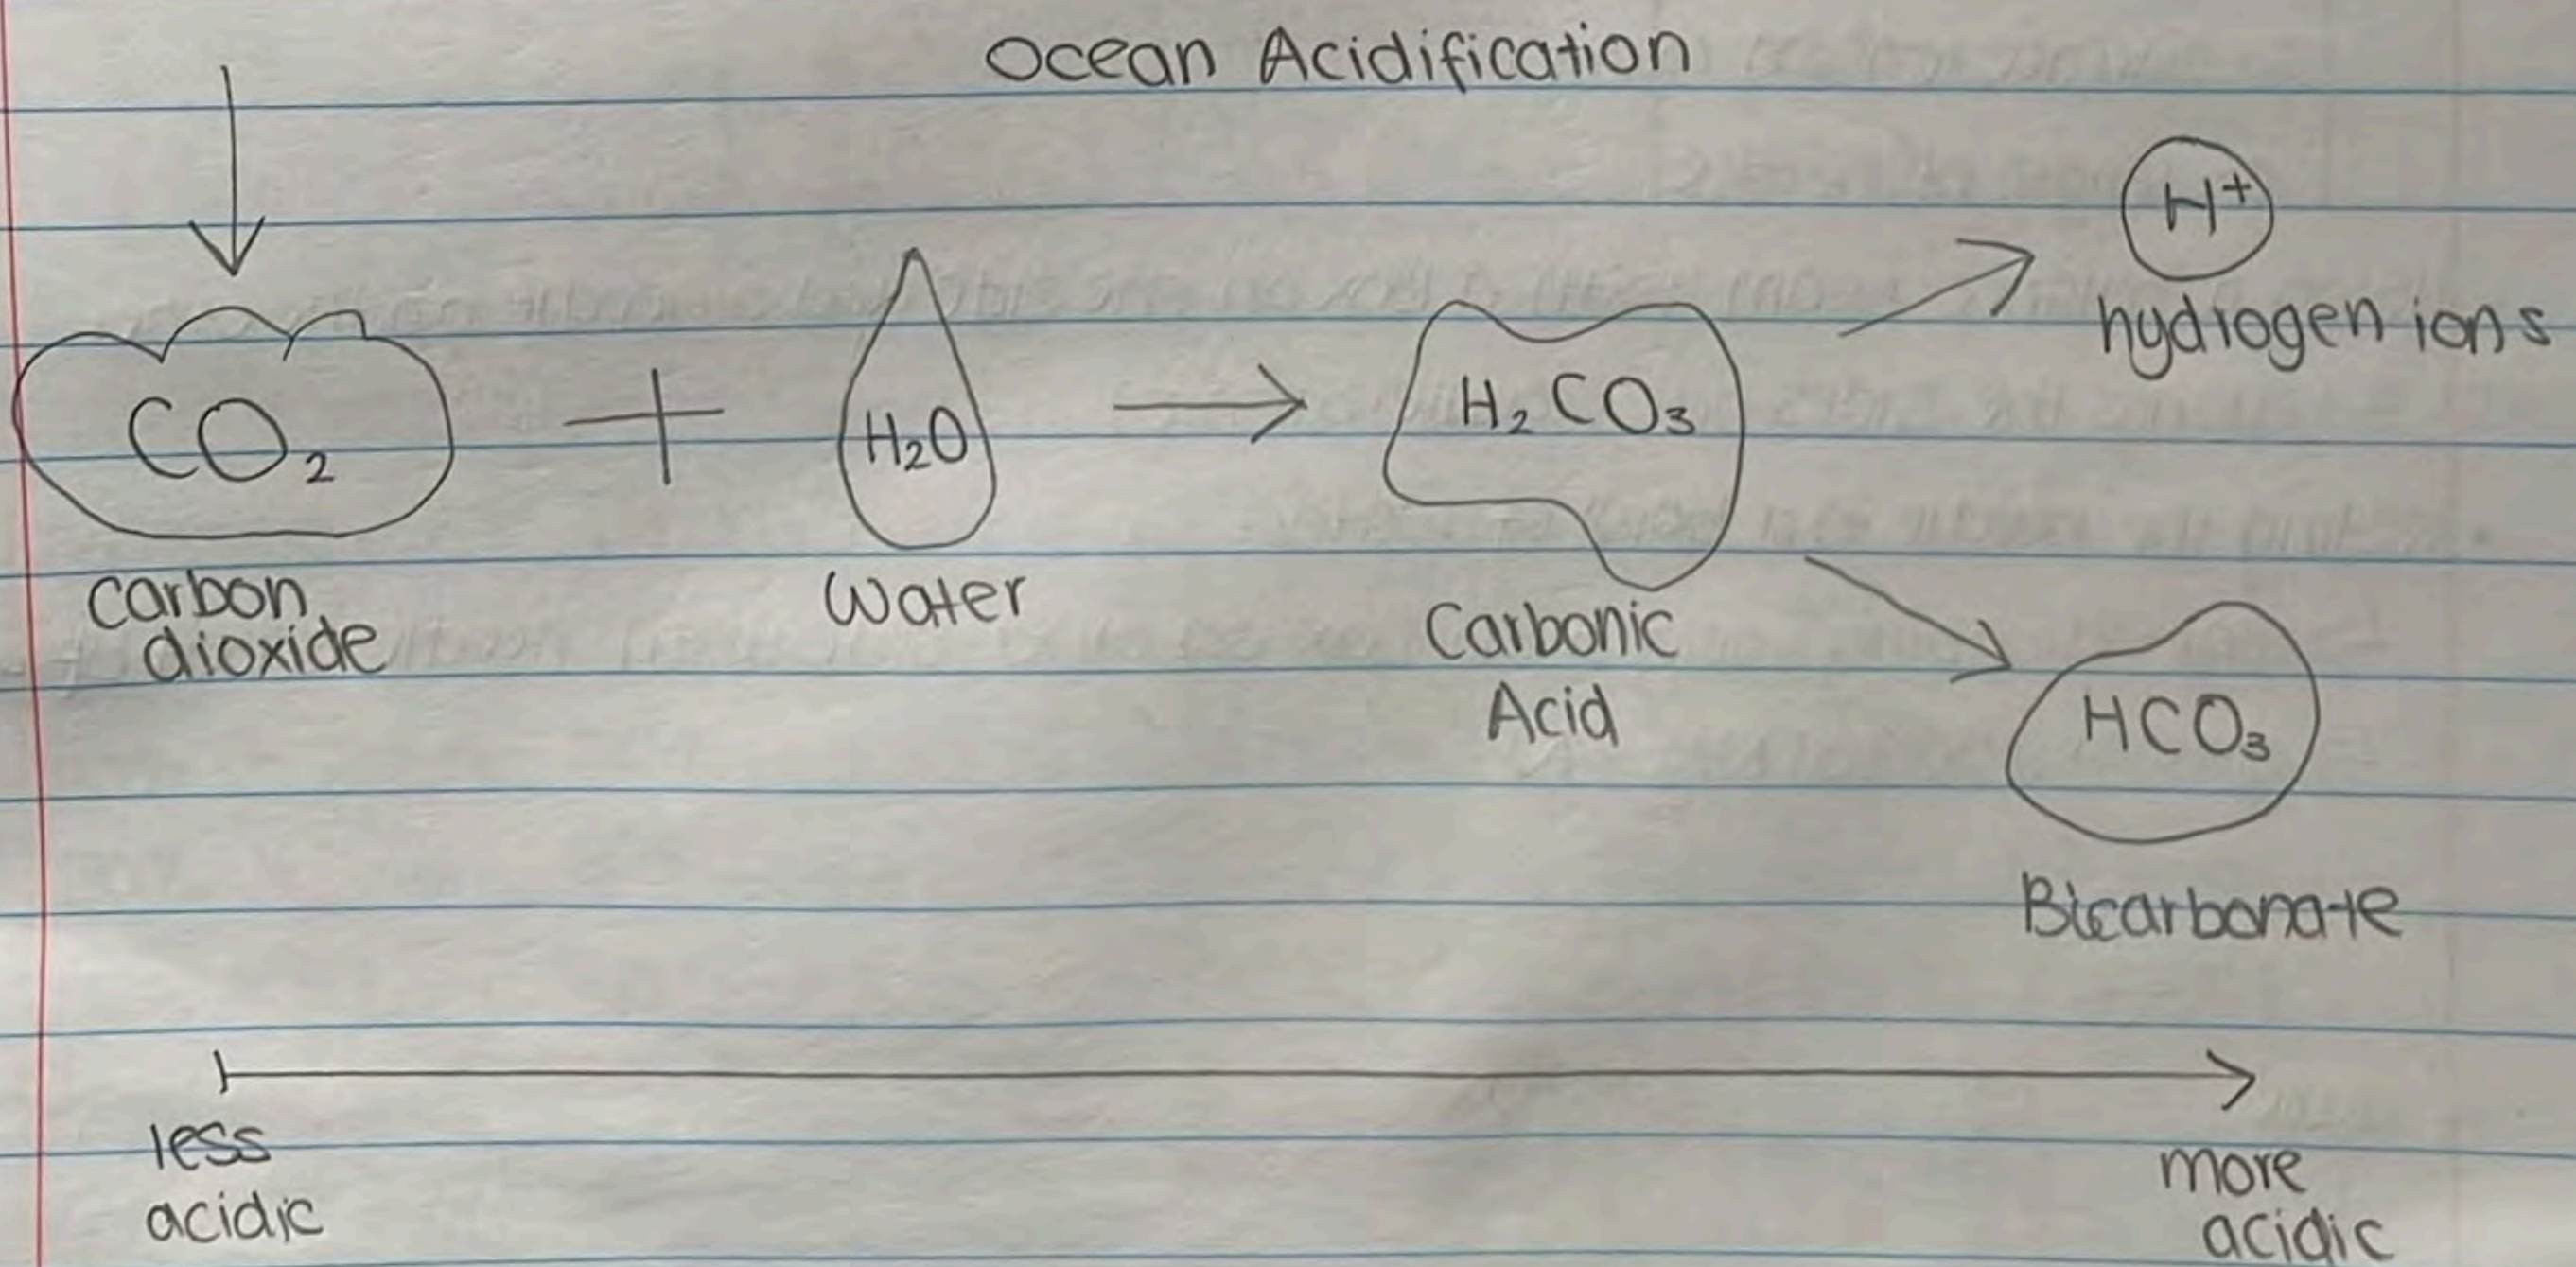 Ocean Acidification
CO₂
+
H₂O
H₂CO₃
H⁺
hydrogen ions
carbon
dioxide
Water
Carbonic
Acid
HCO₃
Bicarbonate
less
acidic
more
acidic